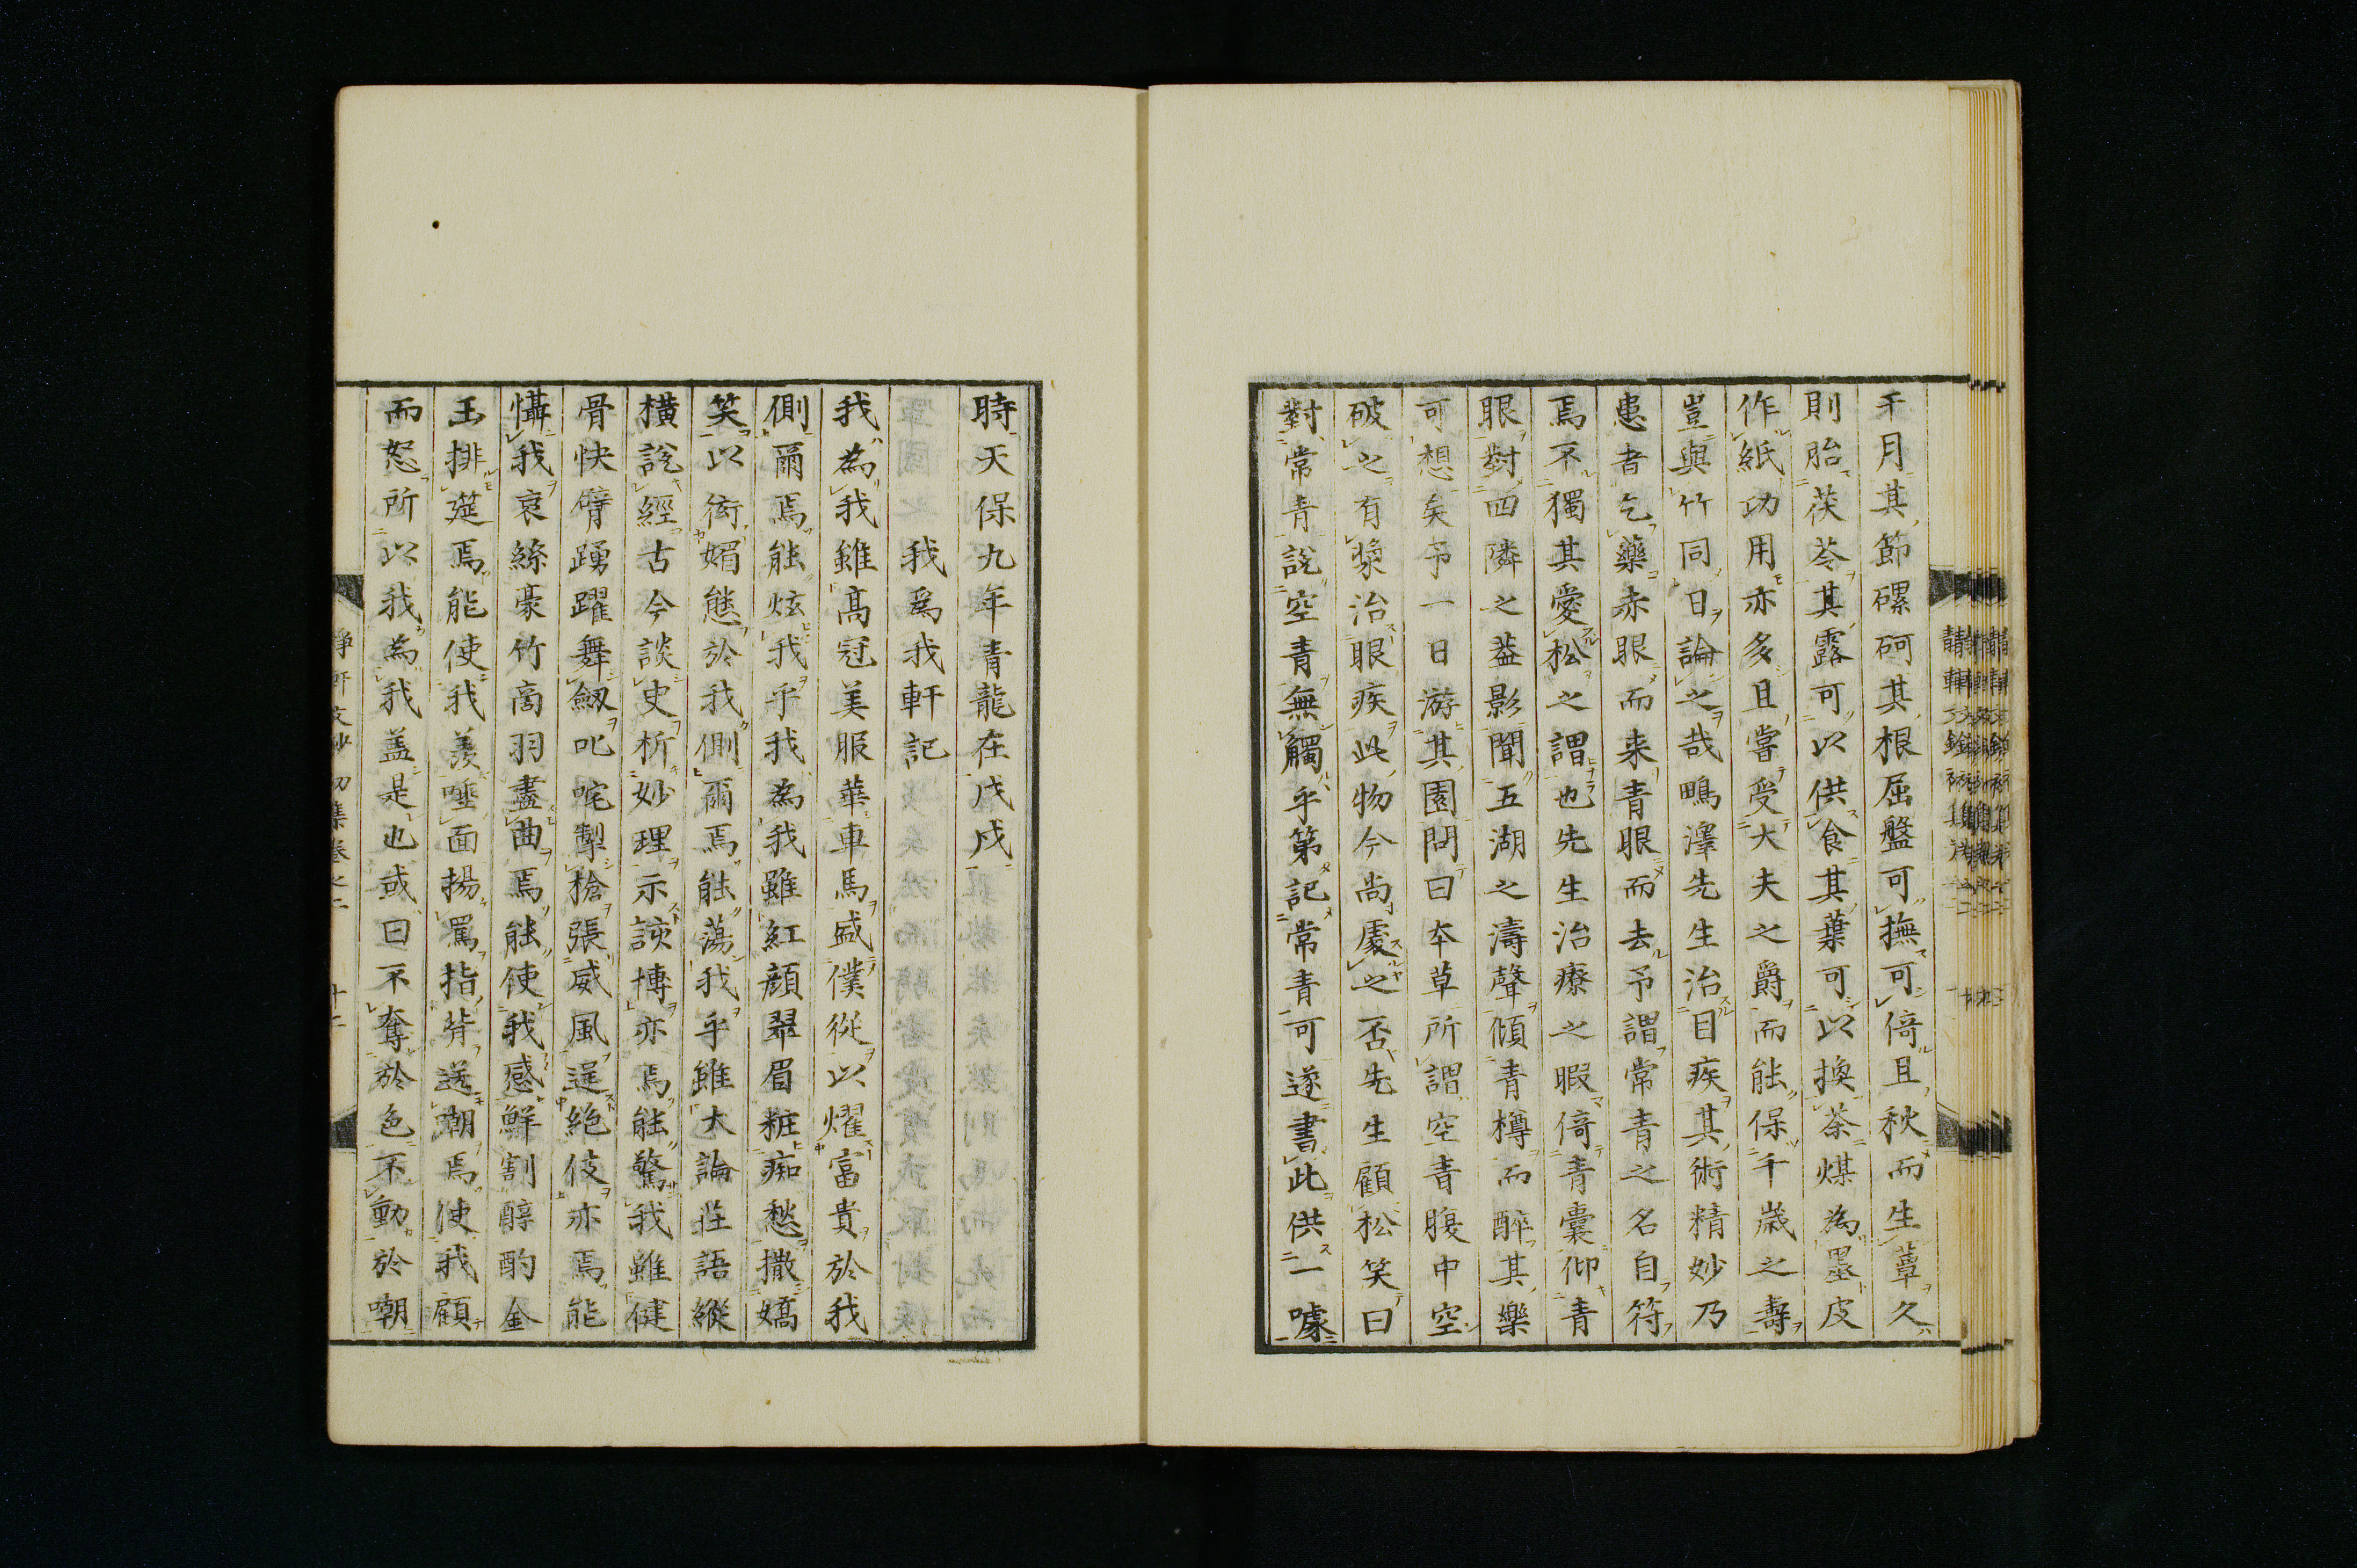 千月其節磥砢其根屈盤可撫可倚且秋而生蕈久
則胎茯苓其露可以供食其葉可以換茶煤為墨皮
作紙功用亦多且嘗受大夫之爵而能保千歳之壽
豈與竹同日論之哉鴨澤先生治目疾其術精妙乃
患者乞藥赤眼而来青眼而去予謂常青之名自符
焉不獨其愛松之謂也先生治療之暇倚青嚢仰青
眼對四隣之蓋影聞五湖之濤聲傾青樽而醉其樂
可想矣予一日游其園問曰本草所謂空青腹中空
破之有漿治眼疾此物今尚處之否先生顧松笑曰
對常青說空青無觸乎第記常青可遂書此供一噱
時天保九年青龍在戊戌
我為我軒記
我為我雖高冠美服華車馬盛僕從以燿富貴於我
側爾焉能炫我乎我為我雖紅顔翠眉粧痴愁撒嬌
笑以衒媚態於我側爾焉能蕩我乎雖大論荘語縱
横說經古今談史析妙理示該博亦焉能驚我雖健
骨快臂踴躍舞劔叱咤掣槍張威風逞絶伎亦焉能
懾我哀絲豪竹啇羽盡曲焉能使我感鮮割醇酌金
玉排筵焉能使我羨唾面揚罵指背送嘲焉使我顧
而怒所以我為我盖是也或曰不奪於色不動於嘲
静軒文鈔初集卷之二 十二